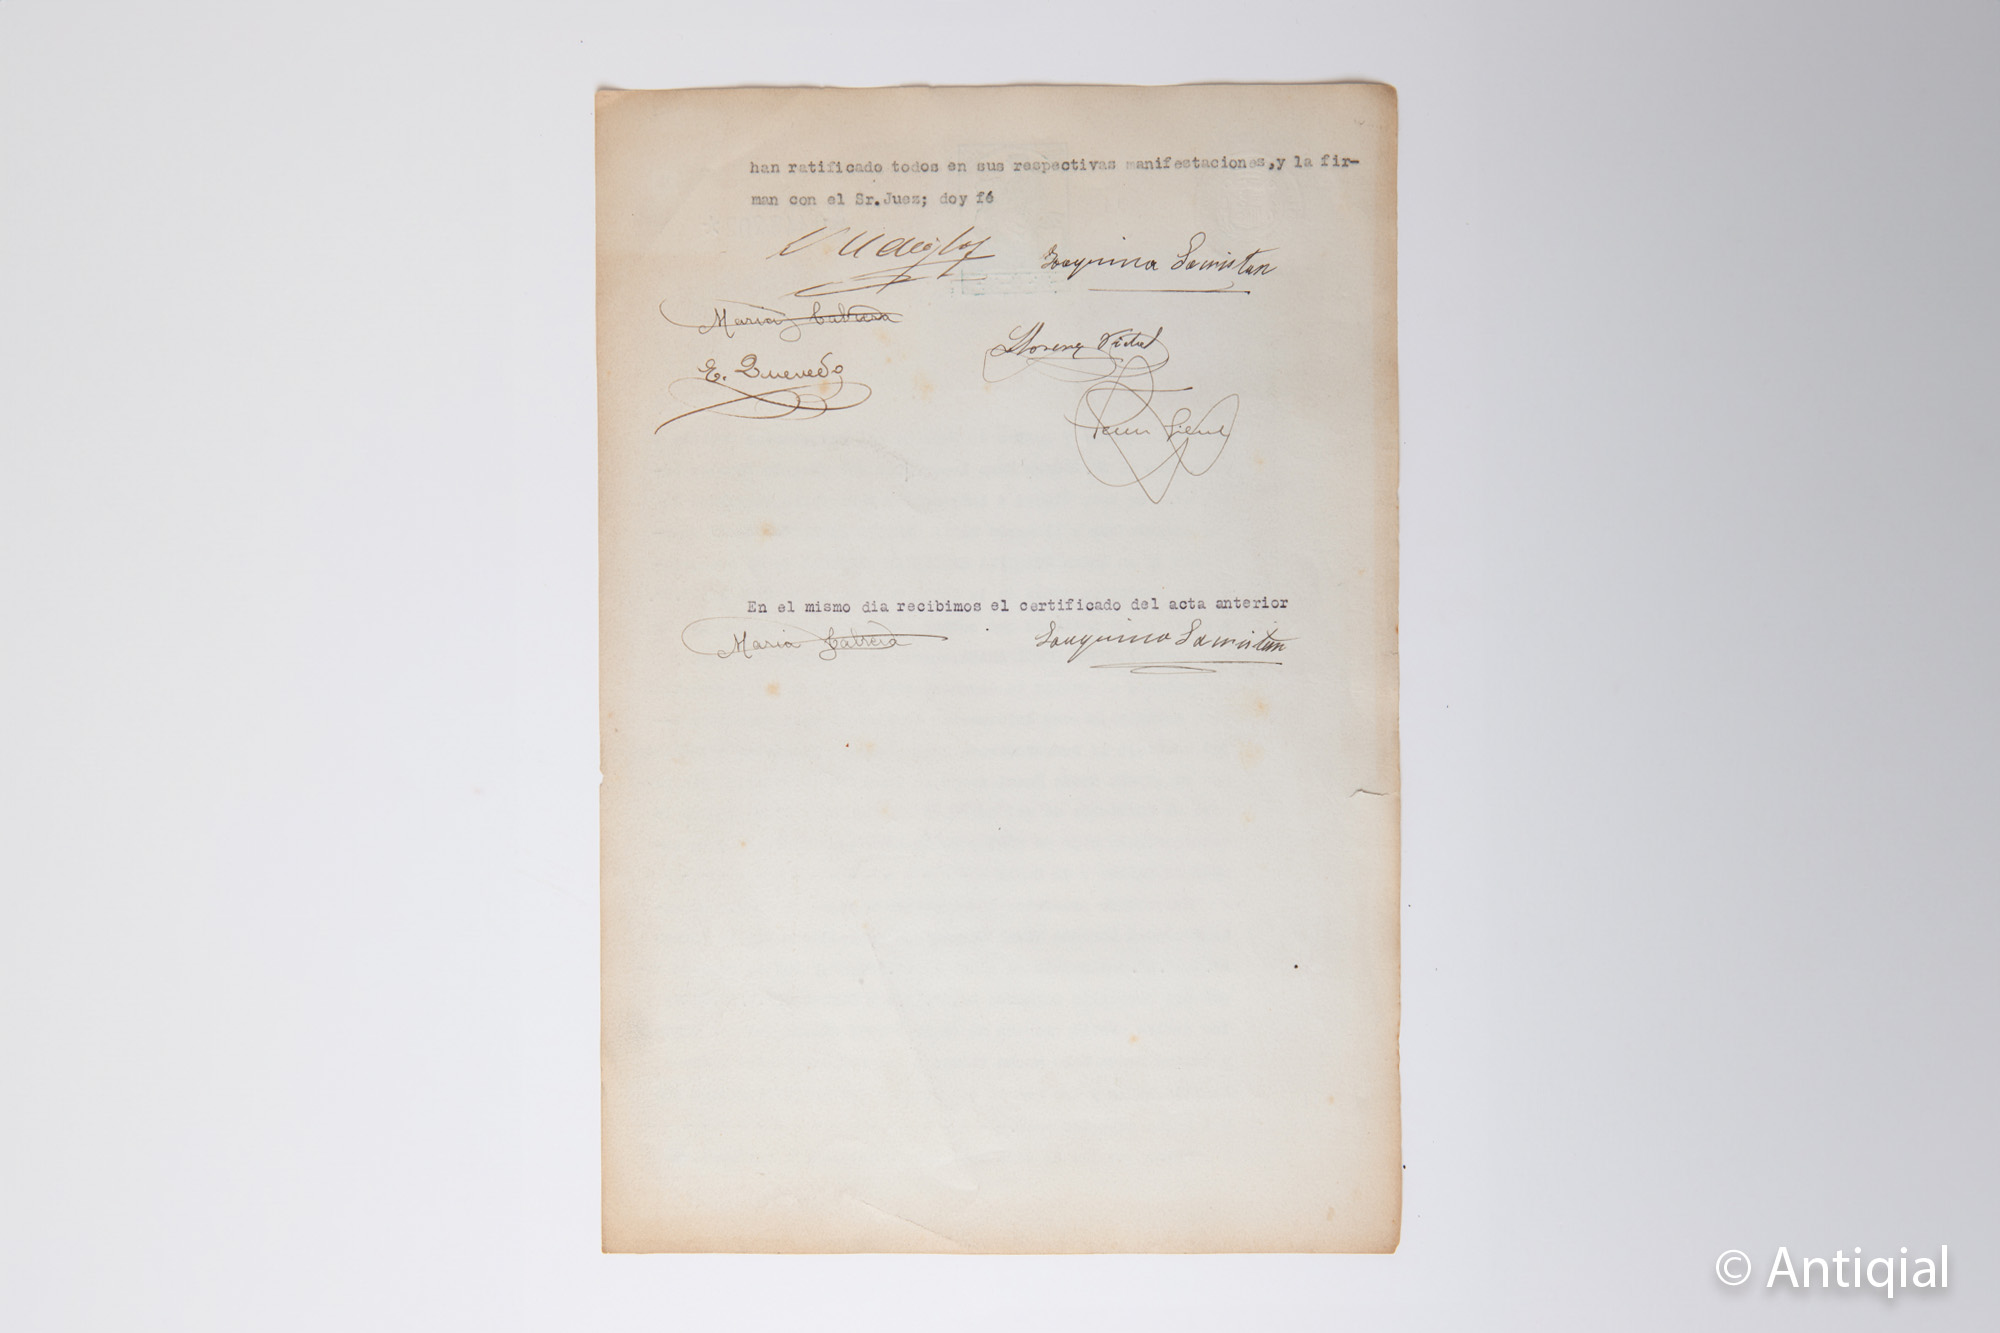 han ratificado todos en sus respectivas manifestaciones,y la fir-
man con el Sr.Juez; doy fé
Joaquina Samistan
Maria Cabrera
Llorens Vidal
E. Quevedo
En el mismo dia recibimos el certificado del acta anterior
Maria Cabrera
Joaquina Samistan
© Antiqial